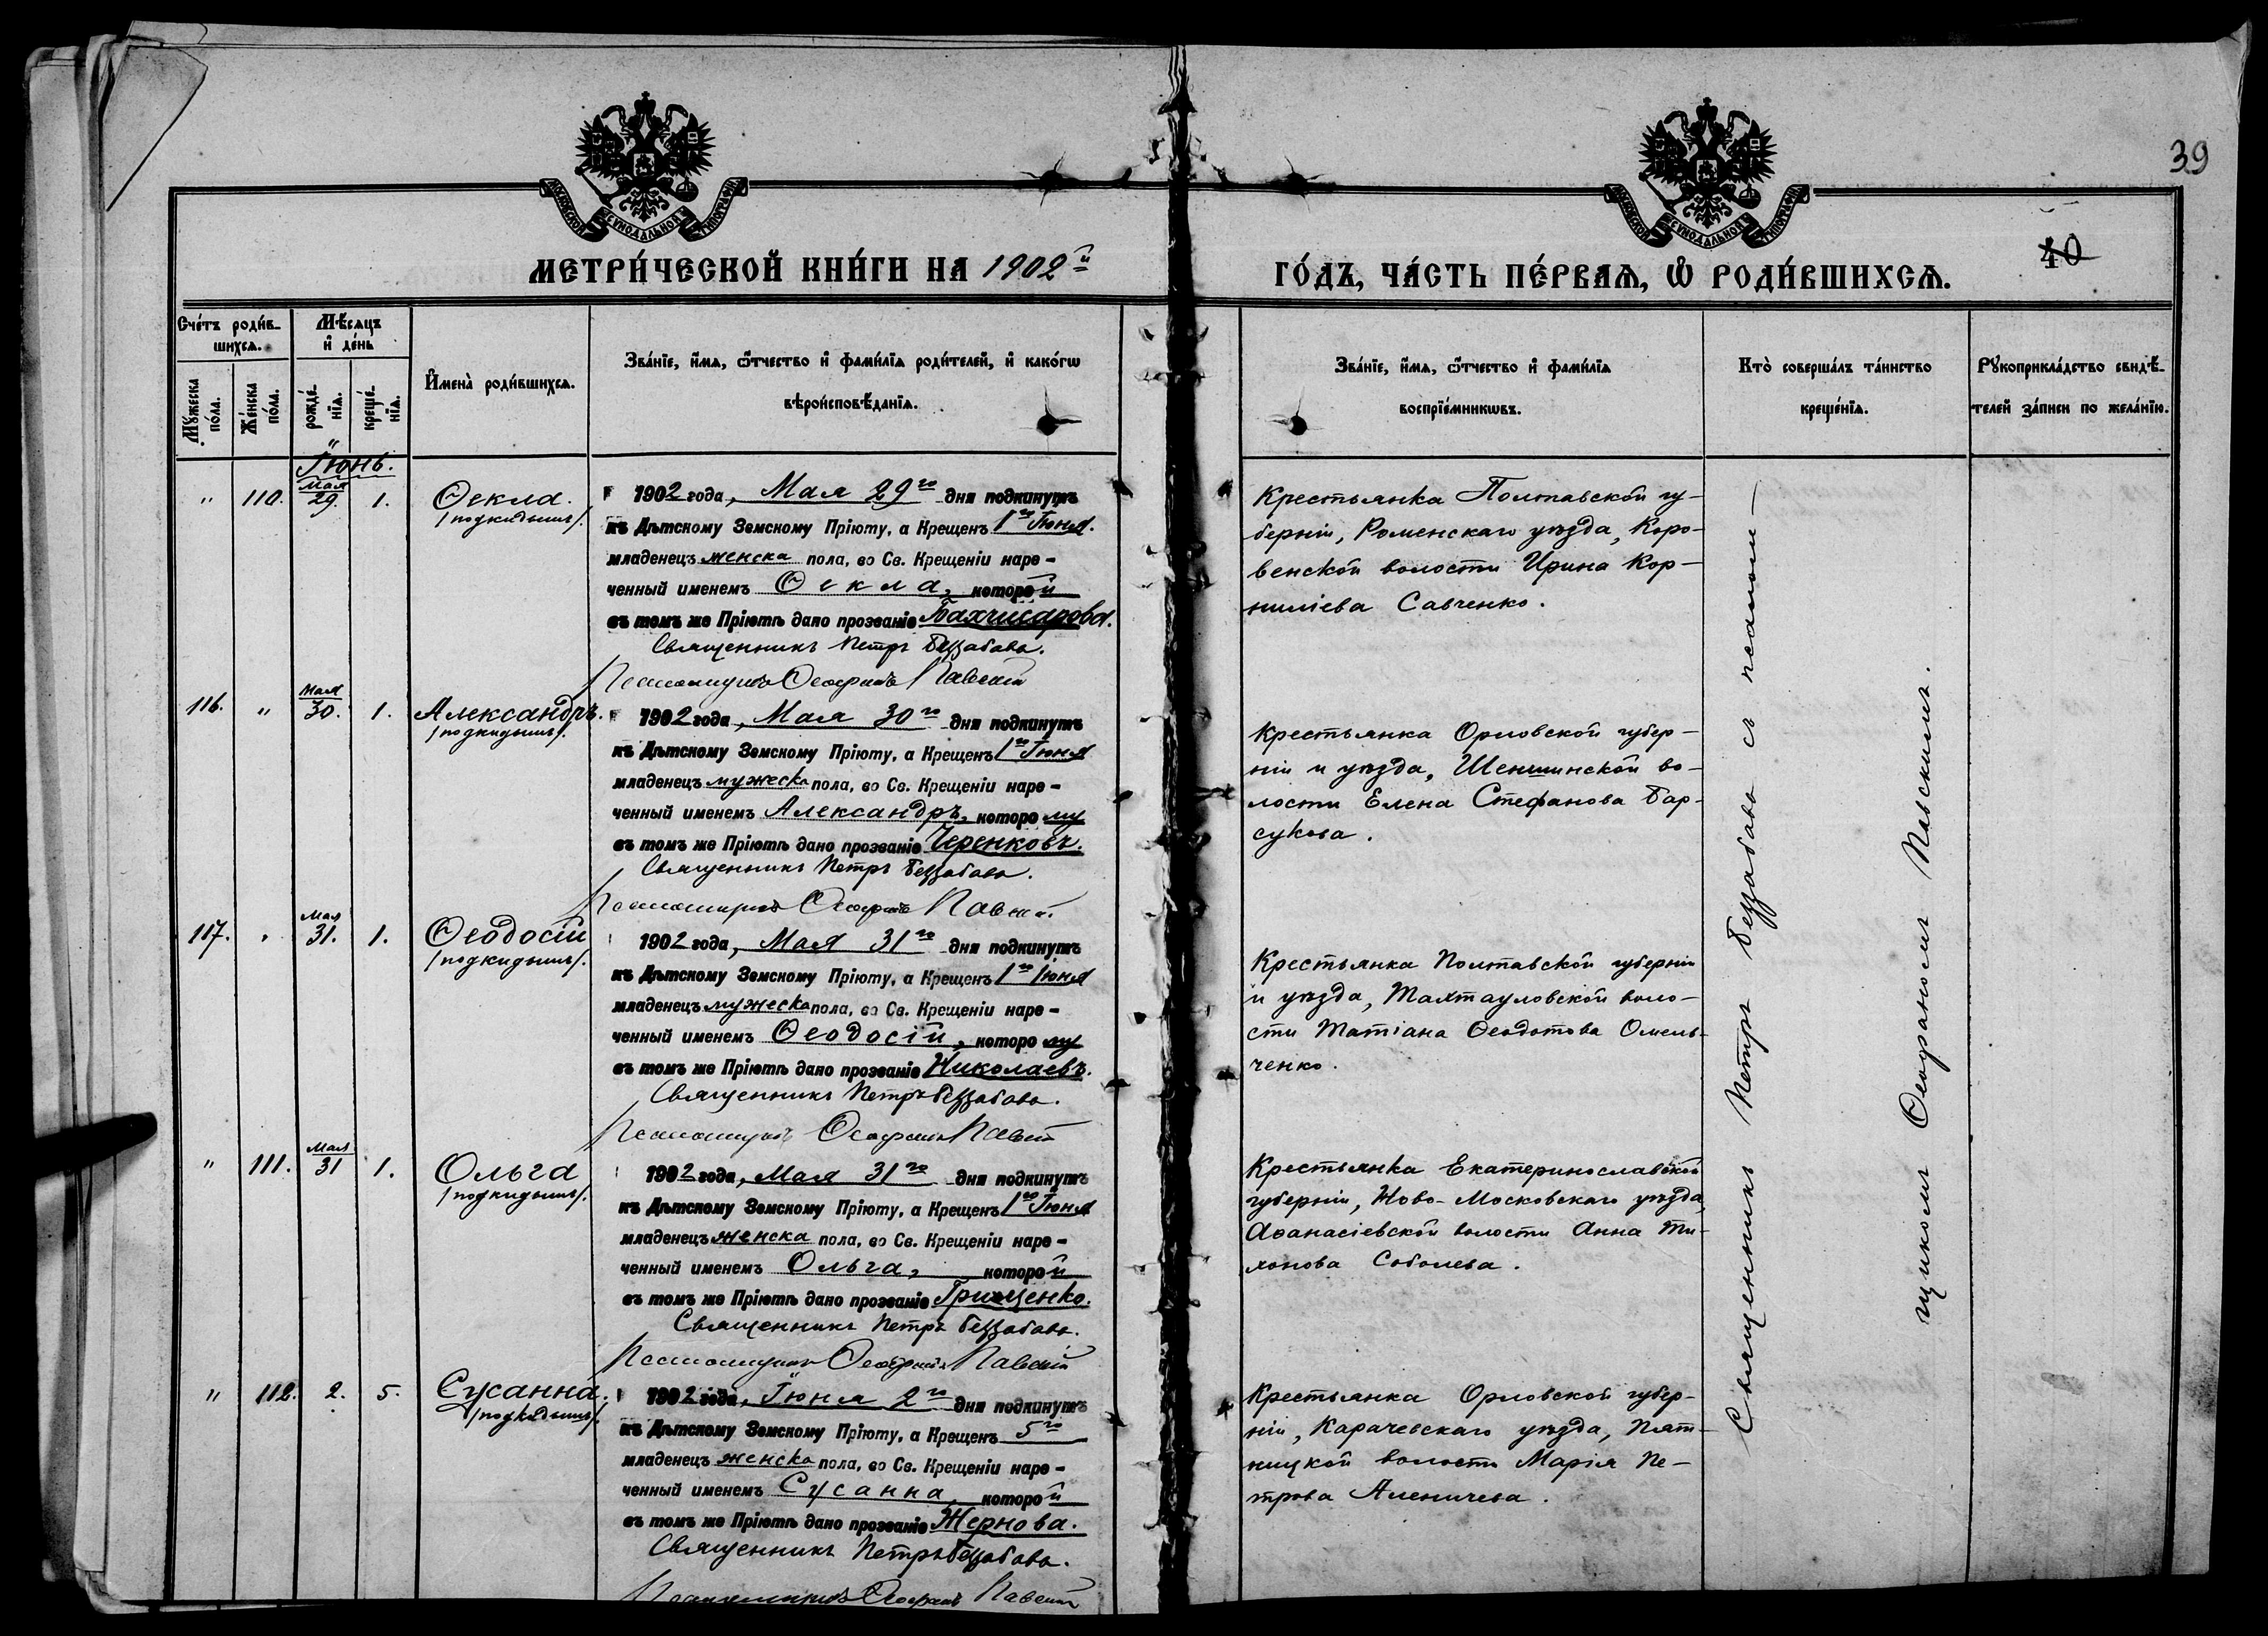 39
40
МОСКОВСКОЙ СѴНОДАЛЬНОЙ ТИПОГРАФІИ
МОСКОВСКОЙ СѴНОДАЛЬНОЙ ТИПОГРАФІИ
МЕТРИ́ЧЕСКОЙ КНИ́ГИ НА 1902й
ГО́ДЪ, ЧА́СТЬ ПЕ́РВАѦ, Ѡ҆ РОДИ́ВШИХСѦ.
Сче́тъ роди́в-
шихсѧ.
Мѣ́сѧцъ
и҆ де́нь
Мꙋжеска по́ла.
Же́нска по́ла.
рожде́-
нїѧ.
креще́-
нїѧ.
И҆мена̀ роди́вшихсѧ.
Зва́нїе, и҆́мѧ, ѻ҆́тчество и҆ фами́лїѧ роди́телей, и҆ како́гѡ
вѣроисповѣ́данїѧ.
Зва́нїе, и҆́мѧ, ѻ҆́тчество и҆ фами́лїѧ
воспрїе́мникѡвъ.
Кто̀ соверша́лъ та́инство
креще́нїѧ.
Рꙋкоприкла́дство свидѣ́-
телей за́писи по жела́нїю.
Іюнь.
" 110. Мая 29. 1. Ѳекла. /подкидышъ/.
1902 года, Мая 29го дня подкинутъ
къ Дѣтскому Земскому Пріюту, а Крещенъ 1го Іюня.
младенецъ женска пола, во Св. Крещеніи наре-
ченный именемъ Ѳекла, которой
въ томъ же Пріютѣ дано прозваніе Бахчисарова.
Священникъ Петръ Беззабава.
Псаломщикъ Ѳеофанъ Павскій
Крестьянка Полтавской гу-
берніи, Роменскаго уѣзда, Коро-
венской волости Ирина Кор-
ниліева Савченко.
116. " Мая 30. 1. Александръ. /подкидышъ/.
1902 года, Мая 30го дня подкинутъ
къ Дѣтскому Земскому Пріюту, а Крещенъ 1го Іюня
младенецъ мужеска пола, во Св. Крещеніи наре-
ченный именемъ Александръ, которому
въ томъ же Пріютѣ дано прозваніе Черенковъ.
Священникъ Петръ Беззабава.
Псаломщикъ Ѳеофанъ Павскій.
Крестьянка Орловской губер-
ніи и уѣзда, Шеншинской во-
лости Елена Стефанова Бар-
сукова.
117. " Мая 31. 1. Ѳеодосій /подкидышъ/.
1902 года, Мая 31го дня подкинутъ
къ Дѣтскому Земскому Пріюту, а Крещенъ 1го Іюня
младенецъ мужеска пола, во Св. Крещеніи наре-
ченный именемъ Ѳеодосій, которому
въ томъ же Пріютѣ дано прозваніе Николаевъ.
Священникъ Петръ Беззабава.
Псаломщикъ Ѳеофанъ Павскій
Крестьянка Полтавской губерніи
и уѣзда, Тахтауловской воло-
сти Татіана Ѳеодотова Омель-
ченко.
" 111. Мая 31 1. Ольга /подкидышъ/.
1902 года, Мая 31го дня подкинутъ
къ Дѣтскому Земскому Пріюту, а Крещенъ 1го Іюня
младенецъ женска пола, во Св. Крещеніи наре-
ченный именемъ Ольга, которой
въ томъ же Пріютѣ дано прозваніе Грищенко.
Священникъ Петръ Беззабава.
Псаломщикъ Ѳеофанъ Павскій
Крестьянка Екатеринославской
губерніи, Ново-Московскаго уѣзда,
Аѳанасіевской волости Анна Ти-
хонова Соболева.
" 112. 2. 5. Сусанна. /подкидышъ/.
1902 года, Іюня 2го дня подкинутъ
къ Дѣтскому Земскому Пріюту, а Крещенъ 5го
младенецъ женска пола, во Св. Крещеніи наре-
ченный именемъ Сусанна, которой
въ томъ же Пріютѣ дано прозваніе Жернова.
Священникъ Петръ Беззабава.
Псаломщикъ Ѳеофанъ Павскій
Крестьянка Орловской губер-
ніи, Карачевскаго уѣзда, Пят-
ницкой волости Марія Пе-
трова Аленичева.
Священникъ Петръ Беззабава съ псалом-
щикомъ Ѳеофаномъ Павскимъ.